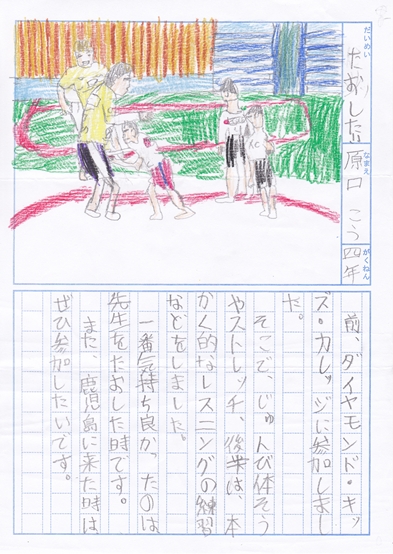 だいめい
たおした!!
なまえ
原口 こう
がくねん
四年
前、ダイヤモンド・キッ
ズ・カレッジに参加しまし
た。
そこで、じゅんび体そう
やストレッチ、後半は、本
かく的なレスリングの練習
などをしました。
一番気持ち良かったのは
先生をたおした時です。
また、鹿児島に来た時は
ぜひ参加したいです。